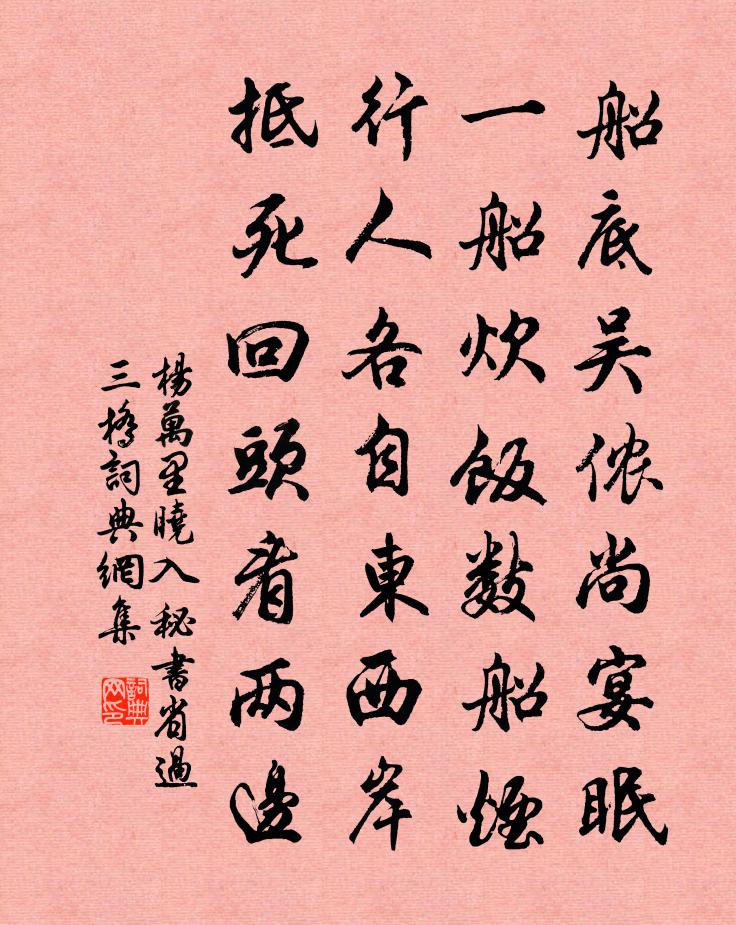 船底吴侬尚宴眠
一船炊饭数船煙
行人各自東西岸
抵死回頭看两邊
楊萬里曉入秘書省過
三橋詞典網集
詞典网印